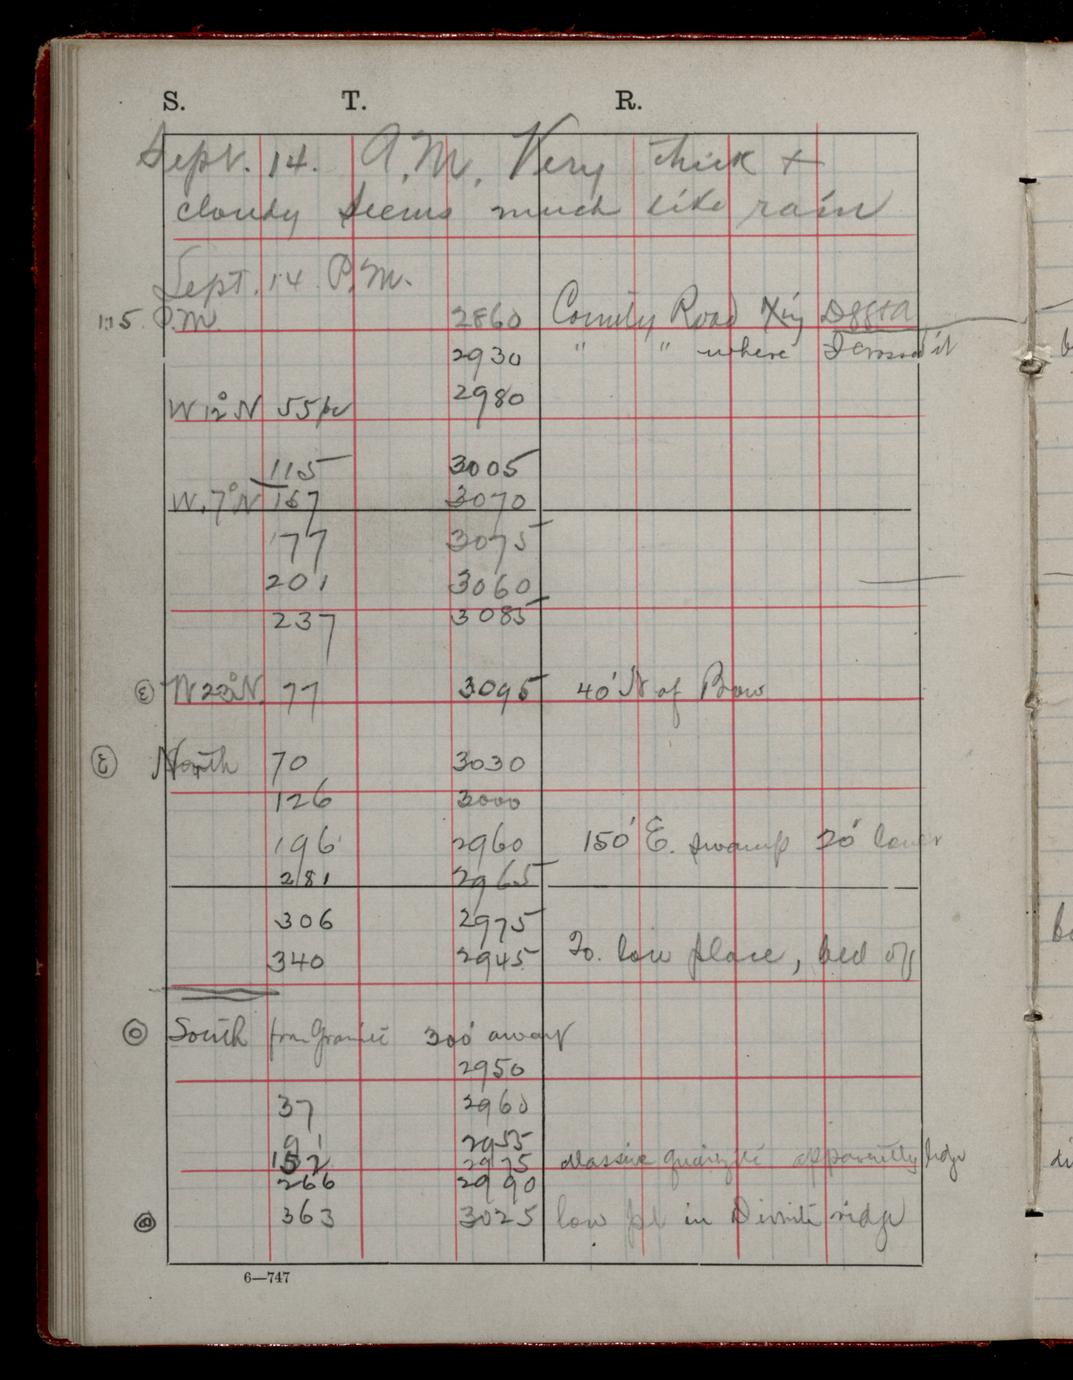 S. T. R.
Sept. 14. A.M. Very thick +
cloudy seems much like rain
Sept. 14 P.M.
1:15 P.M 2860 County Road Xing
2930 " " where I crossed it
W 12° N 55 pc 2980
115 3005
W. 7° N 167 3070
177 3075
201 3060
237 3085
W 22° N. 77 3095 40' N of Brow
North 70 3030
126 3000
196 2960 150' E. swamp 20' lower
281 2965
306 2975
340 2945 To low place, bed of
South from Granite 300' away
2950
37 2960
91 2955
152 2975 Massive quartzite apparently ledge
266 2990
363 3025 low pl in Diorite ridge
6—747